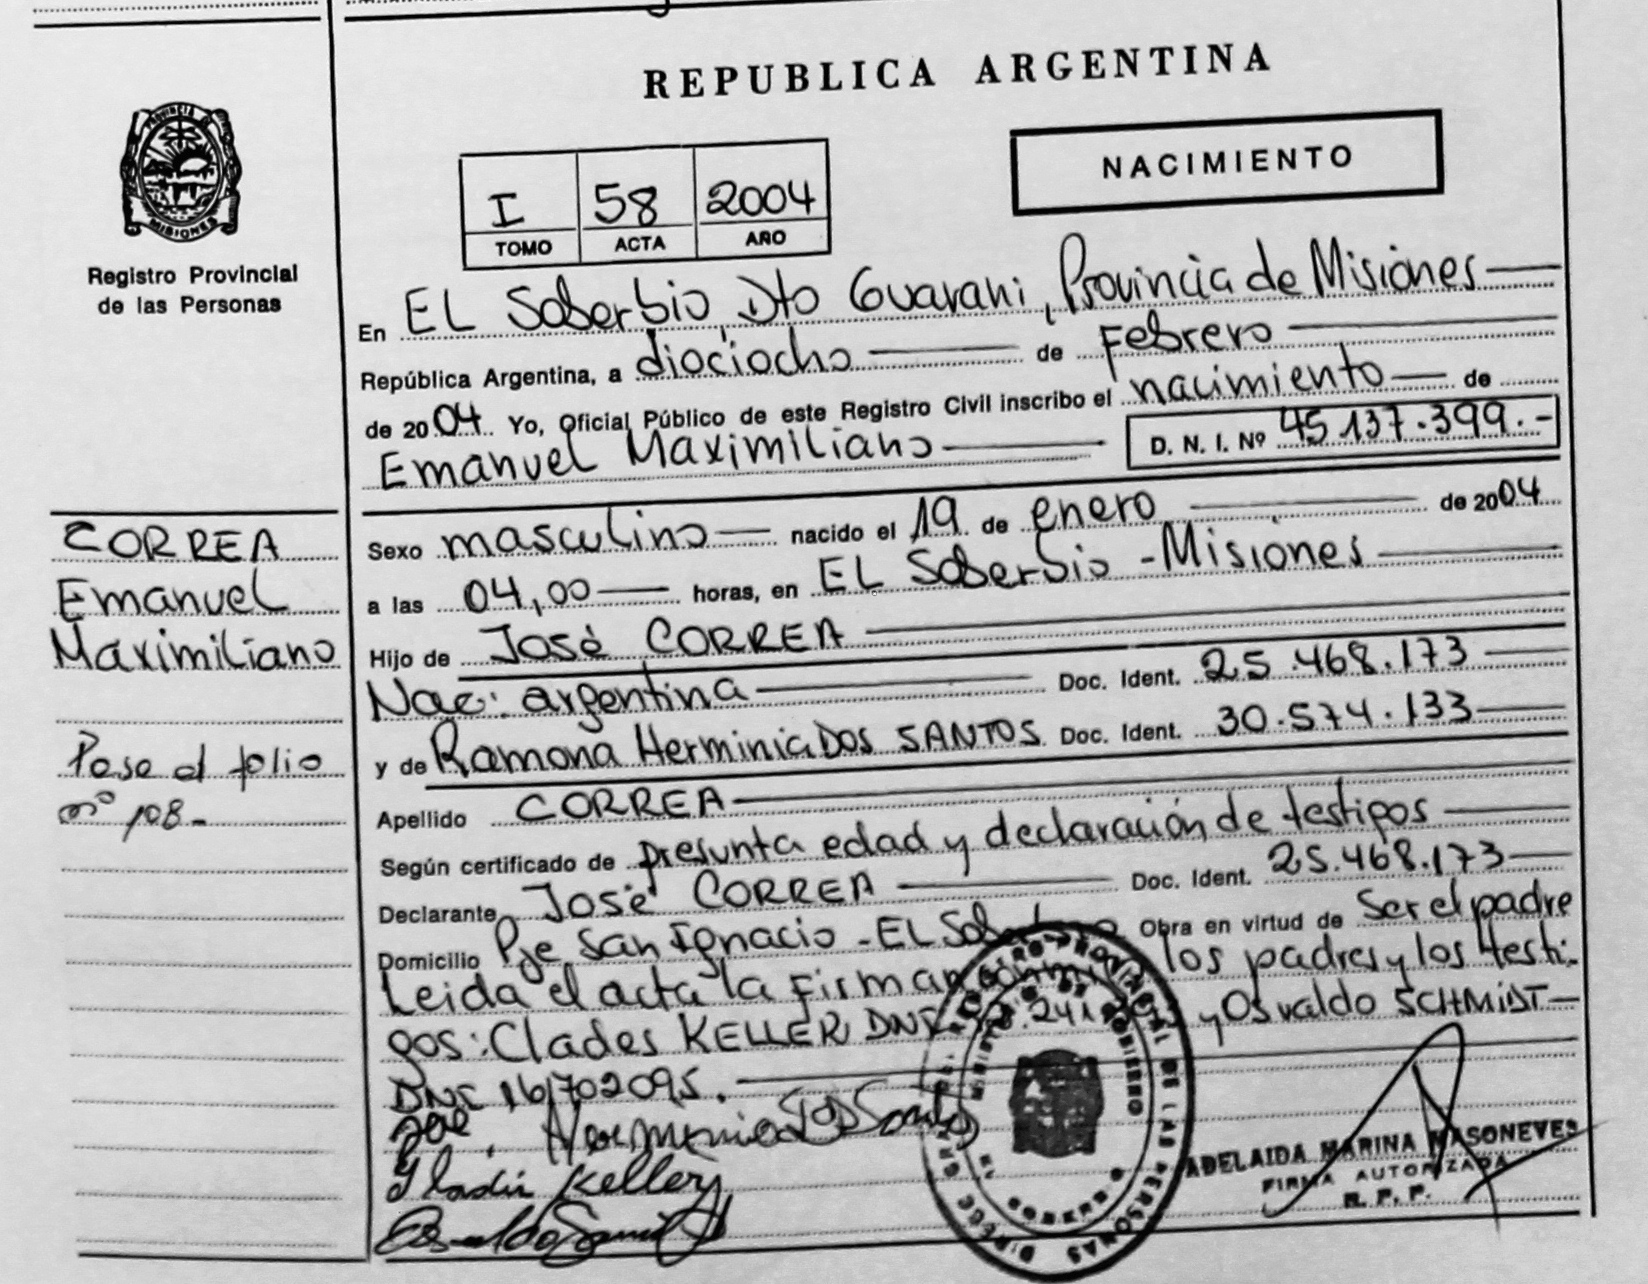 REPUBLICA ARGENTINA
NACIMIENTO
PROVINCIA DE
MISIONES
Registro Provincial
de las Personas
I 58 2004
TOMO ACTA AÑO
En EL Soberbio, Dto Guarani, Provincia de Misiones
República Argentina, a diociocho de Febrero
de 2004. Yo, Oficial Público de este Registro Civil inscribo el nacimiento de
Emanuel Maximiliano D. N. I. Nº 45.137.399.-
CORREA
Emanuel
Maximiliano
Pase al folio
nº 108.-
Sexo masculino nacido el 19 de enero de 2004
a las 04,00 horas, en EL Soberbio - Misiones
Hijo de José CORREA
Nac: argentina Doc. Ident. 25.468.173
y de Ramona Herminia DOS SANTOS Doc. Ident. 30.574.133
Apellido CORREA
Según certificado de presunta edad y declaración de testigos
Declarante José CORREA Doc. Ident. 25.468.173
Domicilio Pje San Ignacio - EL Soberbio Obra en virtud de Ser el padre
Leida el acta la Firman los padres y los testi-
gos: Clades KELLER DNI 241 y Osvaldo SCHMIDT
DNI 16702095.
José
Herminia Dos Santos
Gladis Keller
Osvaldo
PROVINCIAL DE LAS PERSONAS
MINISTERIO DE GOBIERNO
ADELAIDA MARINA MASONEVES
FIRMA AUTORIZADA
R. P. P.